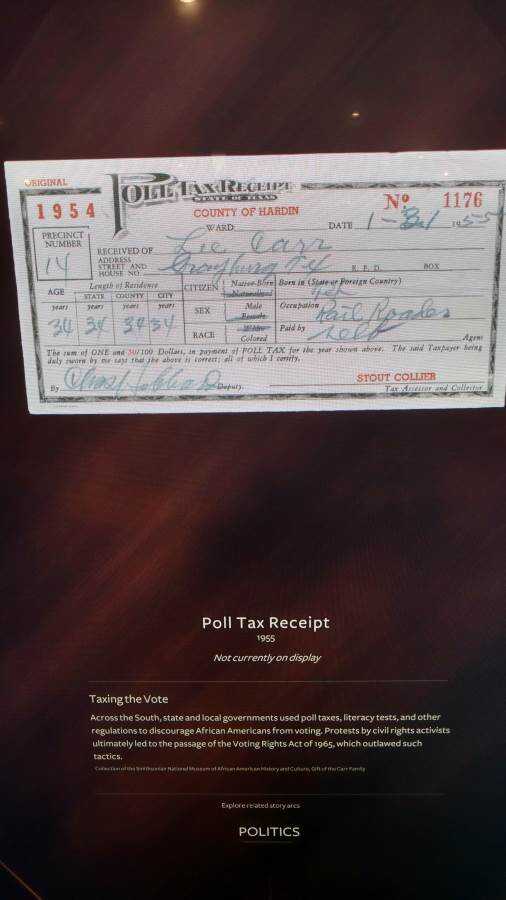 ORIGINAL
POLL TAX RECEIPT
STATE OF TEXAS
1954
COUNTY OF HARDIN
No 1176
WARD
DATE 1-31 1955
PRECINCT NUMBER
14
RECEIVED OF Lee Carr
ADDRESS STREET AND HOUSE NO. Grayburg Tex R. F. D. BOX
AGE
Length of Residence
STATE COUNTY CITY
years years years years
34 34 34 34
CITIZEN Native-Born Naturalized
Born in (State or Foreign Country)
Tex
SEX Male Female
Occupation Rail Roader
RACE White Colored
Paid by Self Agent
The sum of ONE and 50/100 Dollars, in payment of POLL TAX for the year shown above. The said Taxpayer being
duly sworn by me says that the above is correct; all of which I certify.
By Deputy.
STOUT COLLIER
Tax Assessor and Collector
Poll Tax Receipt
1955
Not currently on display
Taxing the Vote
Across the South, state and local governments used poll taxes, literacy tests, and other
regulations to discourage African Americans from voting. Protests by civil rights activists
ultimately led to the passage of the Voting Rights Act of 1965, which outlawed such
tactics.
Collection of the Smithsonian National Museum of African American History and Culture, Gift of the Carr Family
Explore related story arcs
POLITICS